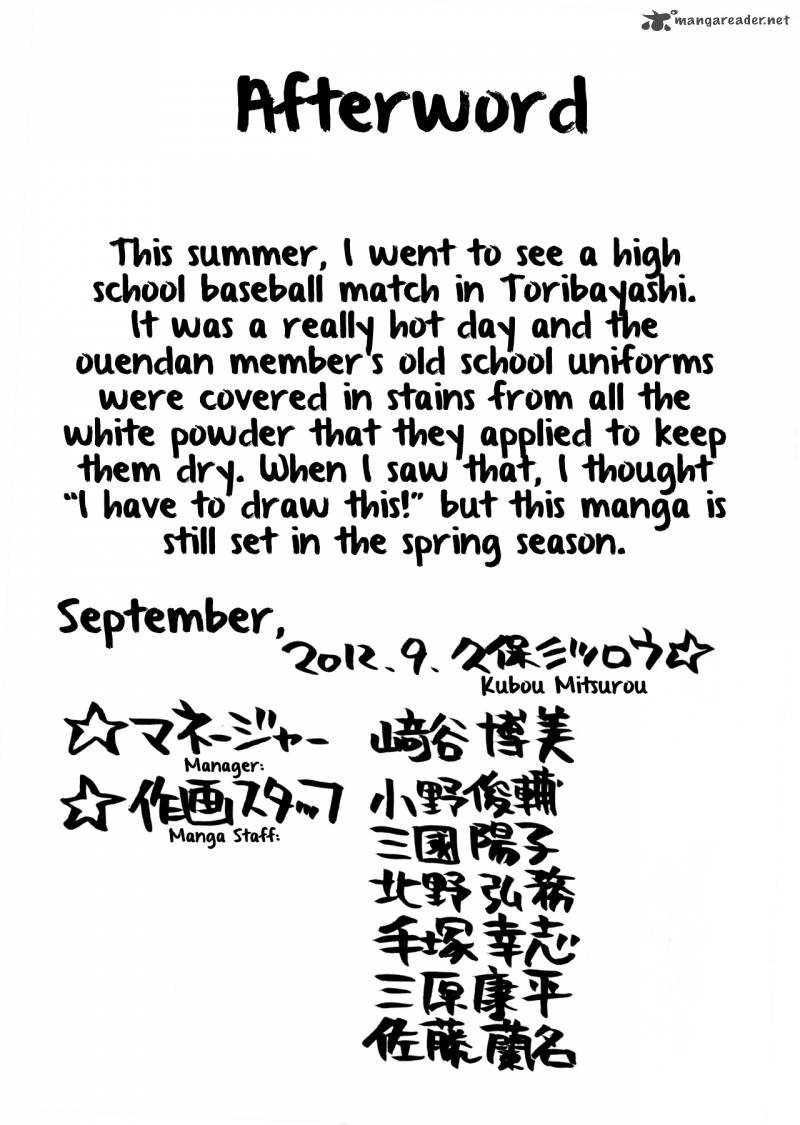 mangareader.net
Afterword
This summer, I went to see a high
school baseball match in Toribayashi.
It was a really hot day and the
ouendan member's old school uniforms
were covered in stains from all the
white powder that they applied to keep
them dry. When I saw that, I thought
“I have to draw this!” but this manga is
still set in the spring season.
September,
2012.9.久保ミツロウ☆
Kubou Mitsurou
☆マネージャー 﨑谷 博美
Manager:
☆作画スタッフ 小野俊輔
Manga Staff:
三國 陽子
北野 弘務
手塚 幸志
三原康平
佐藤蘭名